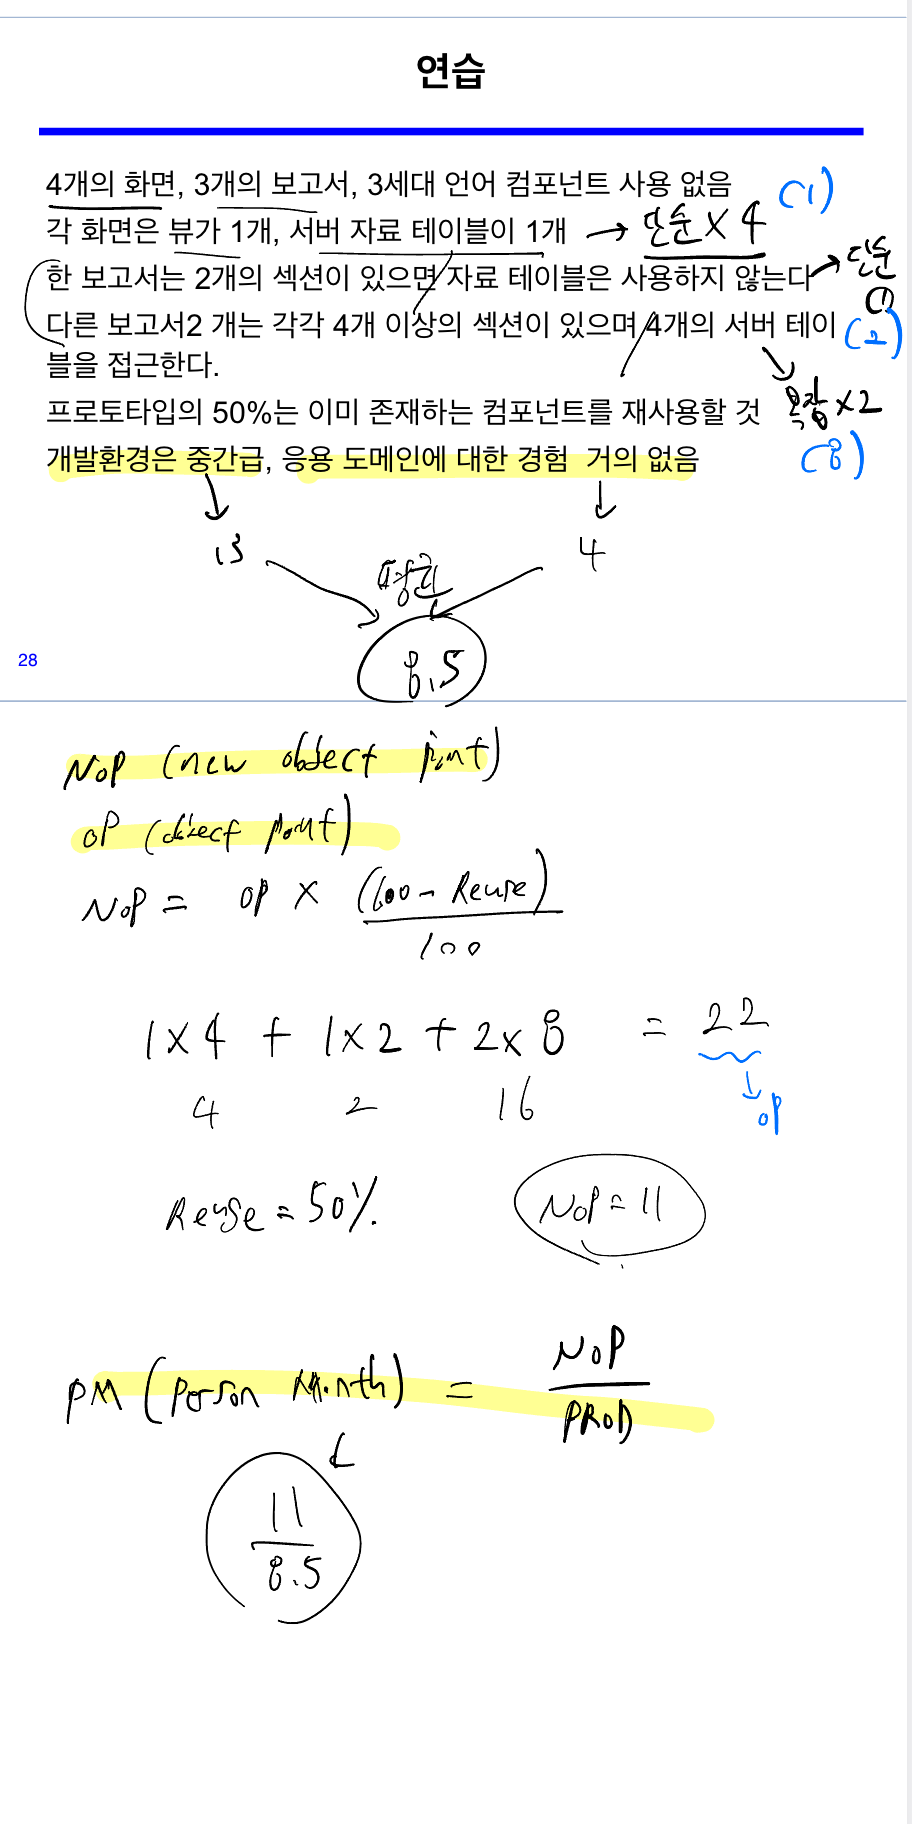 연습
4개의 화면, 3개의 보고서, 3세대 언어 컴포넌트 사용 없음 (1)
각 화면은 뷰가 1개, 서버 자료 테이블이 1개 → 단순 × 4
한 보고서는 2개의 섹션이 있으며 자료 테이블은 사용하지 않는다 → 단순
(1)
다른 보고서2 개는 각각 4개 이상의 섹션이 있으며 4개의 서버 테이 (2)
블을 접근한다.
프로토타입의 50%는 이미 존재하는 컴포넌트를 재사용할 것 복잡 × 2
개발환경은 중간급, 응용 도메인에 대한 경험 거의 없음 (8)
13 4
평균
8.5
28
NOP (new object point)
OP (object point)
NOP = OP × (100 - Reuse)
100
1×4 + 1×2 + 2×8 = 22
4 2 16 → OP
Reuse = 50% NOP = 11
PM (Person Month) = NOP
PROD
11
8.5